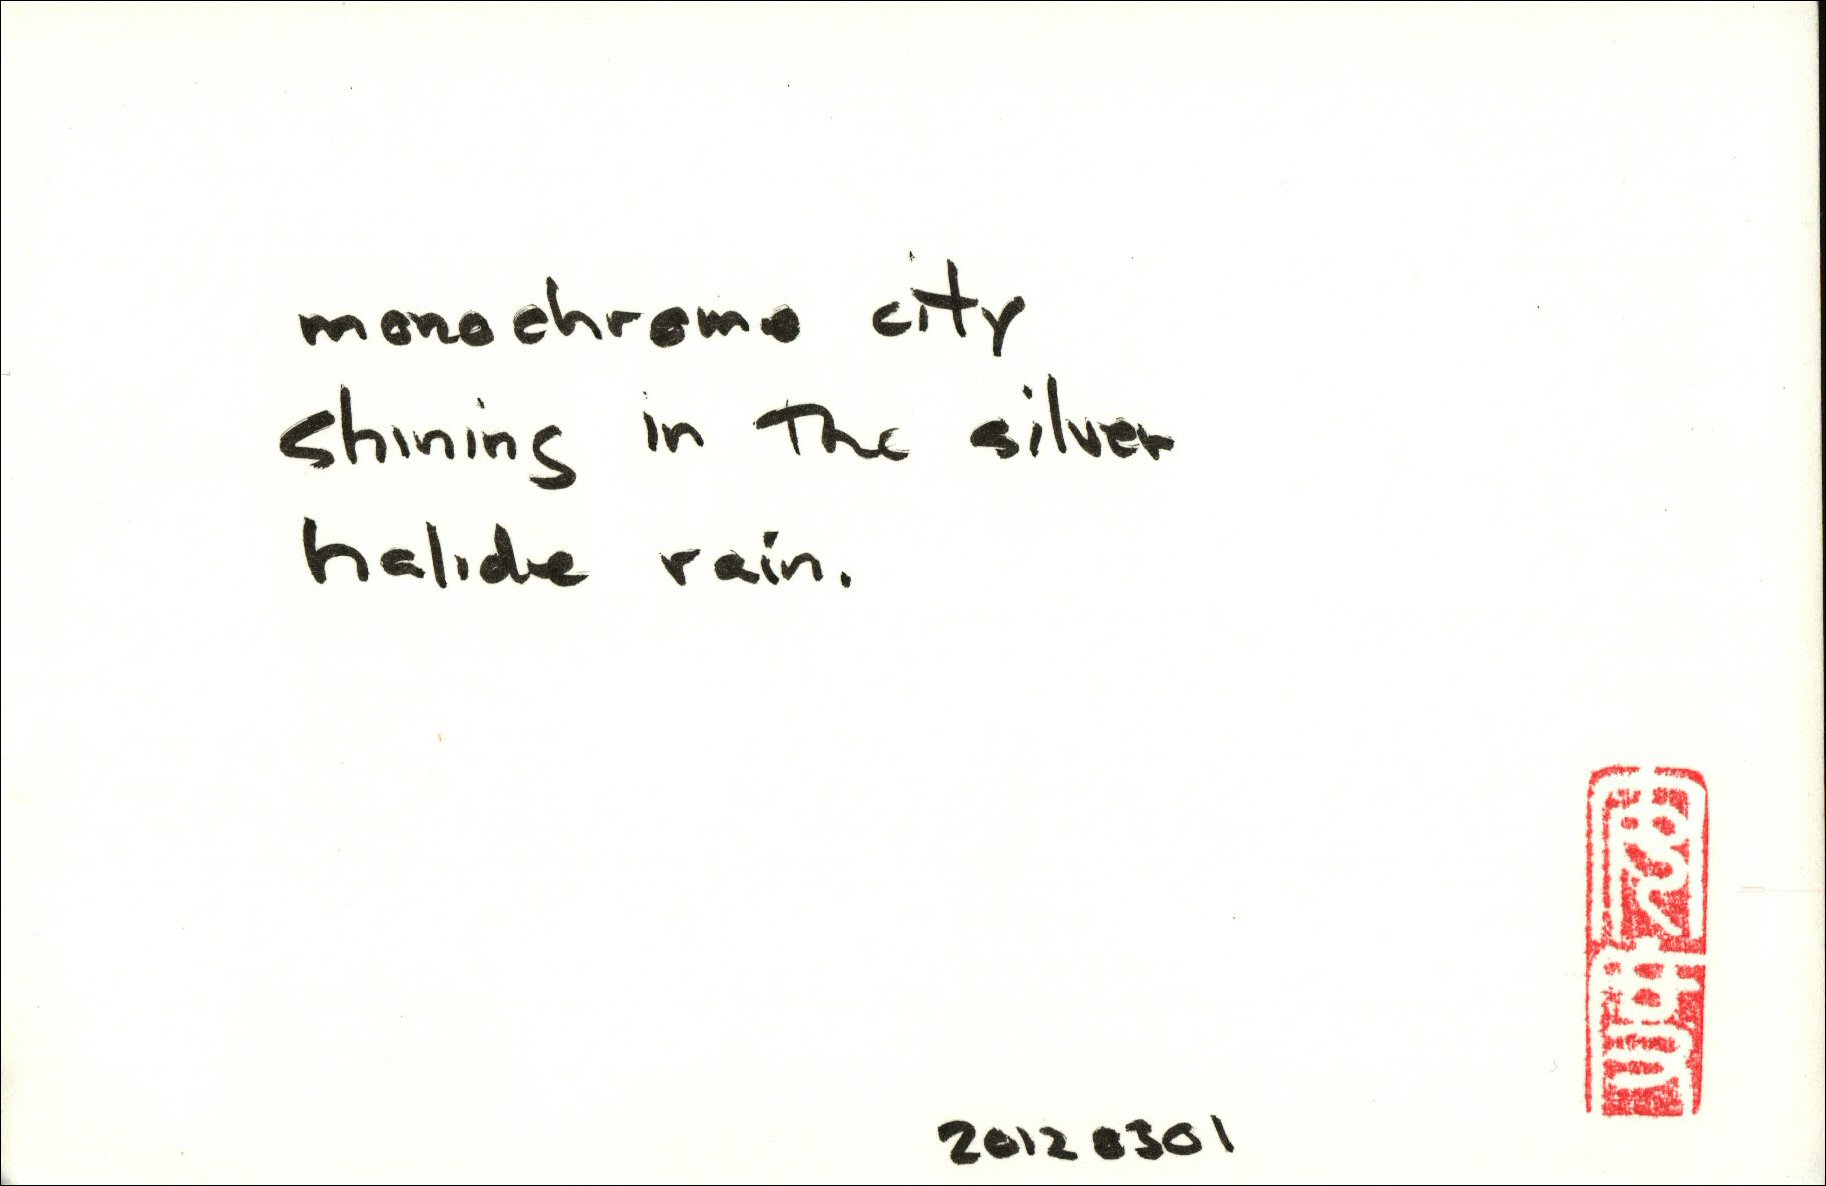 monochrome city
shining in the silver
halide rain.
20120301